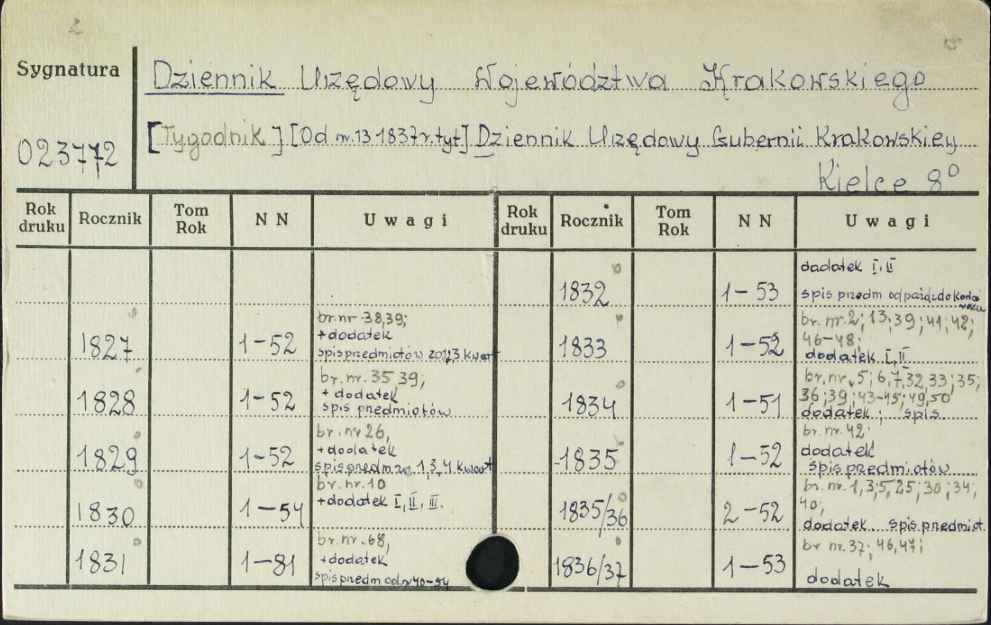 Sygnatura
Dziennik Urzędowy Województwa Krakowskiego
[Tygodnik] [Od nr. 13 1837 r. tyt] Dziennik Urzędowy Gubernii Krakowskiey
023772
Kielce 8°
Rok druku Rocznik Tom Rok N N Uwagi Rok druku Rocznik Tom Rok N N Uwagi
1827 1-52 br. nr 38,39;
+dodatek
spis przedmiotów
1828 1-52 br. nr. 35 39,
+ dodatek
spis przedmiotów
1829 1-52 br. nr 26,
+dodatek
spis przedm za 1, 3, 4 kwart
1830 1-54 br. nr. 10
+dodatek I, II, III.
1831 1-81 br. nr. 68,
+dodatek
spis przedm od
1832 1-53 dodatek I, II
spis przedm od paźdz. do końca
1833 1-52 br. nr. 2; 13; 39; 41; 42;
46-48;
dodatek I, II
1834 1-51 br. nr. 5; 6,7,32,33; 35;
36; 39; 43-45; 49,50
dodatek; spis
1835 1-52 br. nr. 42;
dodatek
spis przedmiotów
1835/36 2-52 br. nr. 1, 3; 5, 25; 30; 34;
40;
dodatek spis przedmiot.
1836/37 1-53 br nr. 37; 46, 47;
dodatek